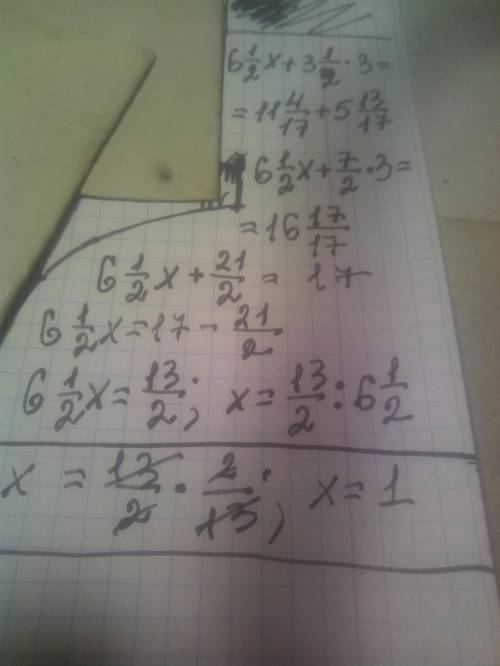 6 1/2 x + 3 1/2 · 3 =
= 11 4/17 + 5 13/17
6 1/2 x + 7/2 · 3 =
= 16 17/17
6 1/2 x + 21/2 = 17
6 1/2 x = 17 - 21/2
6 1/2 x = 13/2; x = 13/2 : 6 1/2
x = 13/2 · 2/13; x = 1